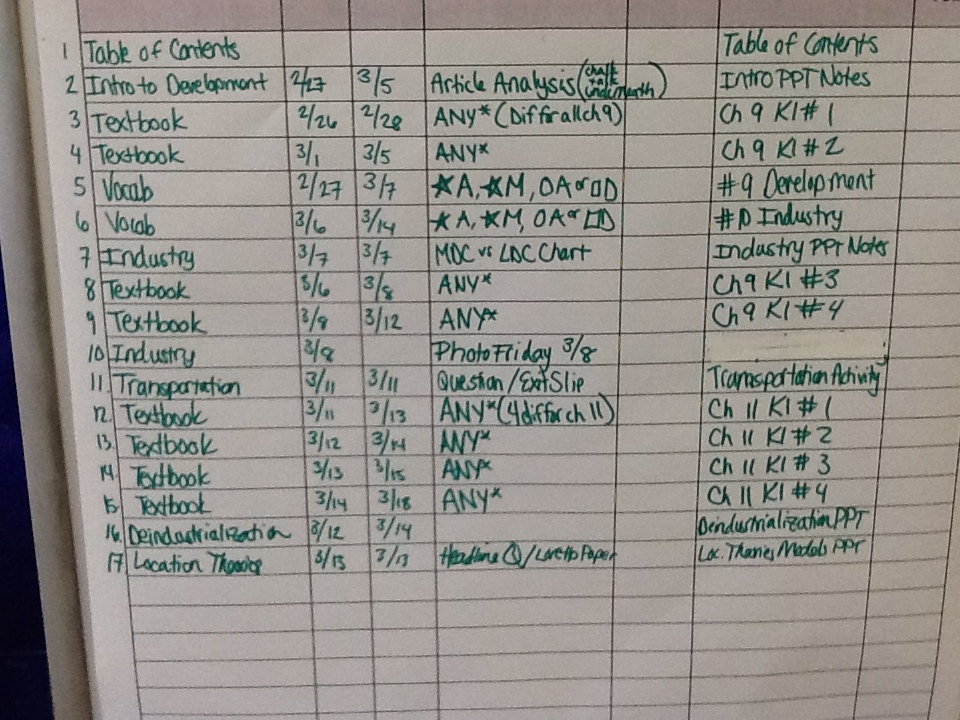 1 Table of Contents Table of Contents
2 Intro to Development 2/27 3/5 Article Analysis (chalk talk underneath) Intro PPT Notes
3 Textbook 2/26 2/28 ANY* (Diff for all ch 9) Ch 9 KI # 1
4 Textbook 3/1 3/5 ANY* Ch 9 KI # 2
5 Vocab 2/27 3/7 ★A, ★M, OA or □D #9 Development
6 Vocab 3/6 3/14 ★A, ★M, OA or □D Industry
7 Industry 3/7 3/7 MDC vs LDC Chart Industry PPT Notes
8 Textbook 3/6 3/8 ANY* Ch 9 KI #3
9 Textbook 3/8 3/12 ANY* Ch 9 KI #4
10 Industry 3/8 Photo Friday 3/8
11. Transportation 3/11 3/11 Question / Exit Slip Transportation Activity
12. Textbook 3/11 3/13 ANY* (4 diff for ch 11) Ch 11 KI # 1
13. Textbook 3/12 3/14 ANY* Ch 11 KI # 2
14. Textbook 3/13 3/15 ANY* Ch 11 KI # 3
15. Textbook 3/14 3/18 ANY* Ch 11 KI # 4
16. Deindustrialization 3/12 3/14 Deindustrialization PPT
17 Location Theories 3/13 3/13 Headline Q / Paper Loc. Theories Models PPT